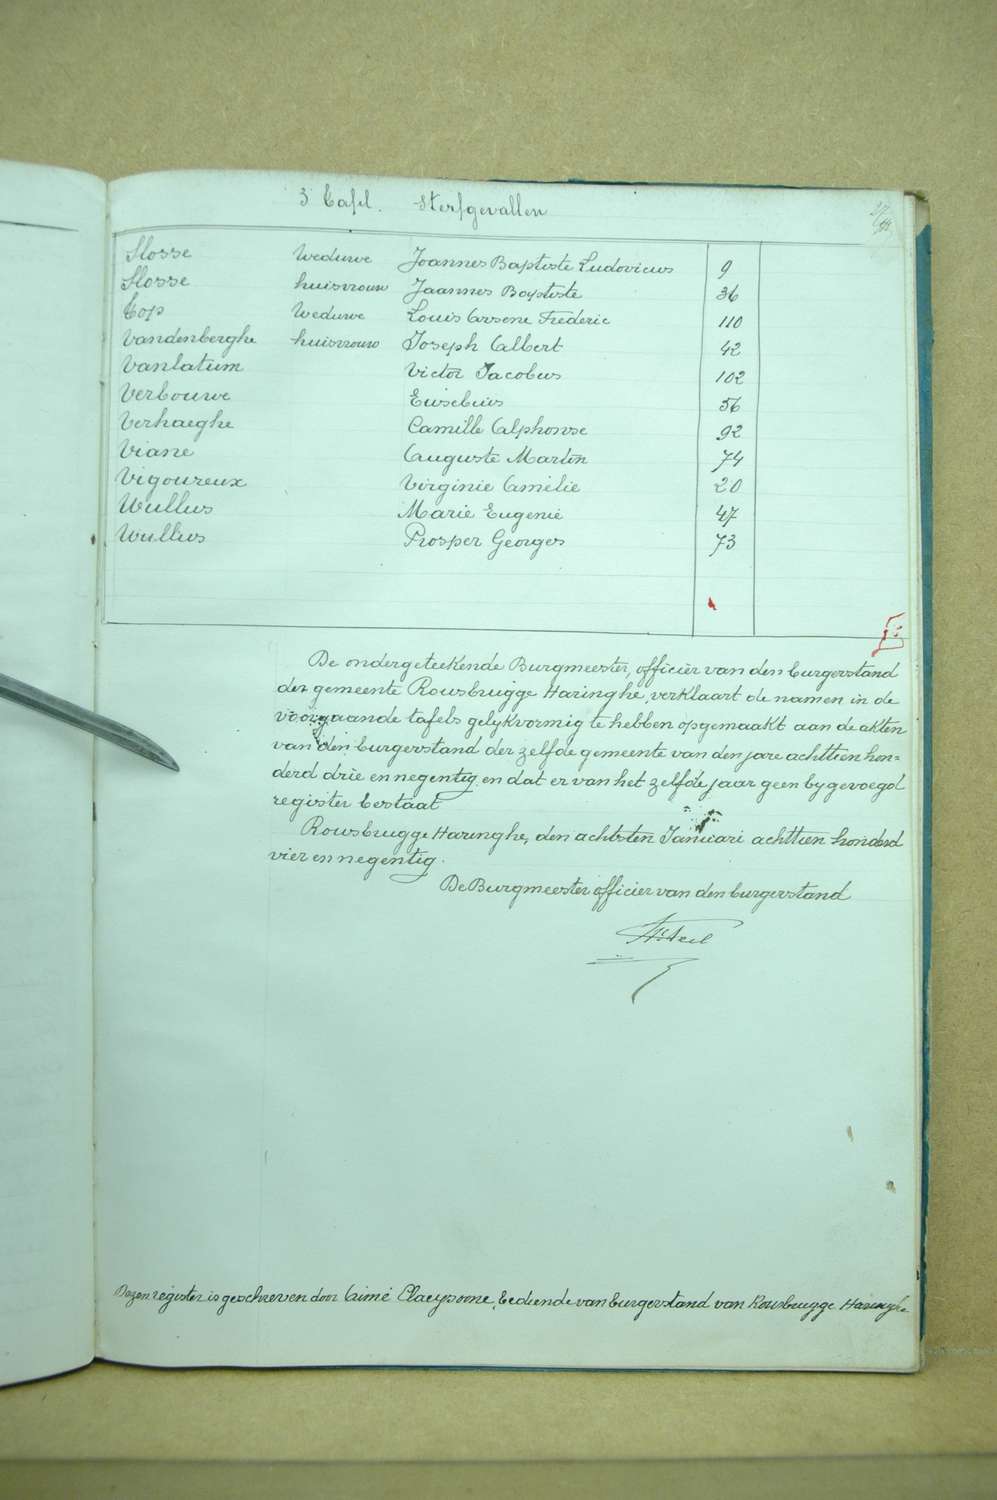 3 Tafel. Sterfgevallen
Slosse weduwe Joannes Baptiste Ludovicus 9
Slosse huisvrouw Jaannes Baptiste 36
Top weduwe Louis Arsene Frederic 110
Vandenberghe huisvrouw Joseph Albert 42
Vanlatum Victor Jacobus 102
Verbouwe Eusebius 56
Verhaeghe Camille Alphonse 92
Viane Auguste Martin 74
Vigoureux Virginie Amélie 20
Wullus Marie Eugenie 47
Wullus Prosper Georges 73
De ondergeteekende Burgmeester, officier van den burgerstand
der gemeente Rousbrugge Haringhe, verklaart de namen in de
voorgaande tafels gelykvormig te hebben opgemaakt aan de akten
van den burgerstand der zelfde gemeente van den jare achttien hon=
derd drie en negentig en dat er van het zelfde jaar geen bygevoegd
register bestaat
Rousbrugge Haringhe, den achtsten Januari achttien honderd
vier en negentig.
De Burgmeester officier van den burgerstand
Dezen register is geschreven door Aimé Claeysoone, bediende van burgerstand van Rousbrugge Haringhe